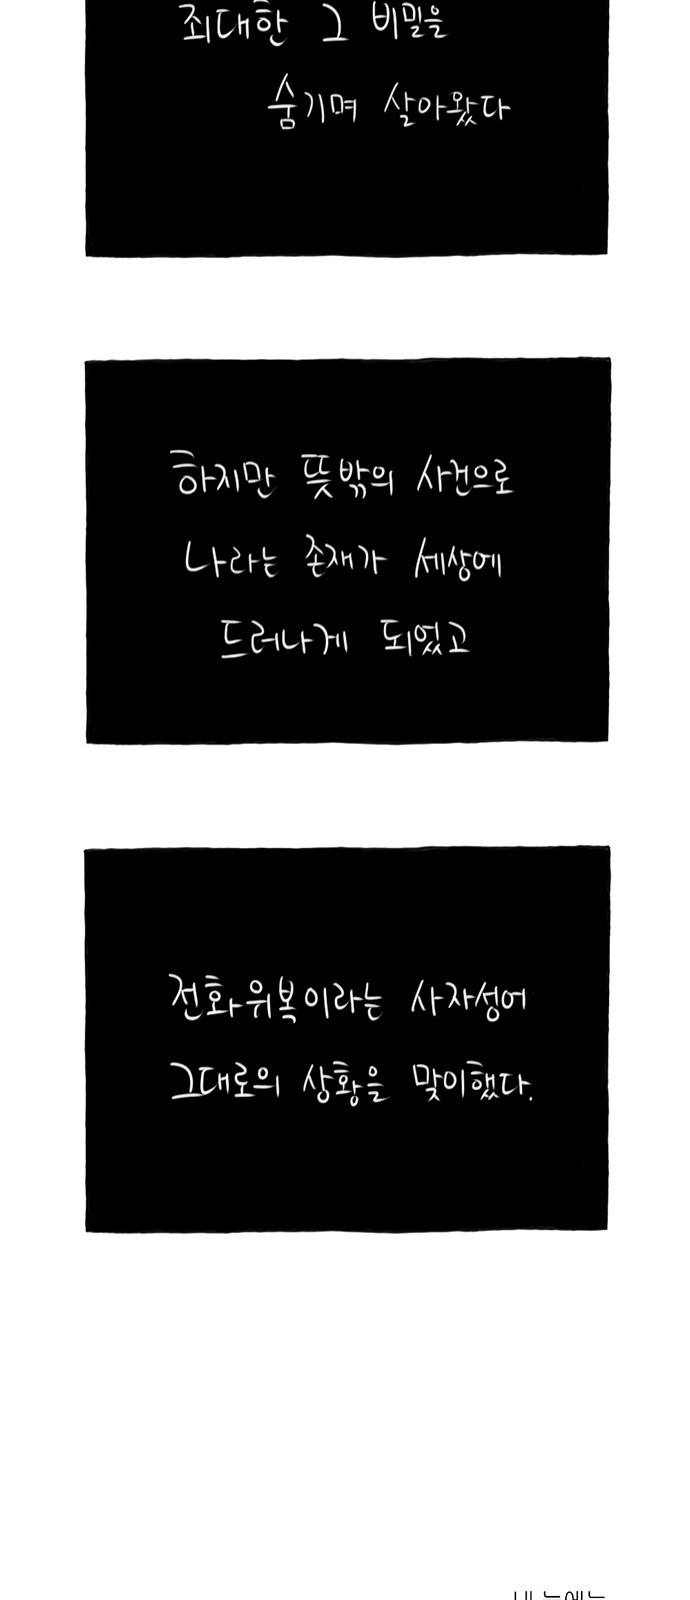 최대한 그 비밀을
숨기며 살아왔다
하지만 뜻밖의 사건으로
나라는 존재가 세상에
드러나게 되었고
전화위복이라는 사자성어
그대로의 상황을 맞이했다.